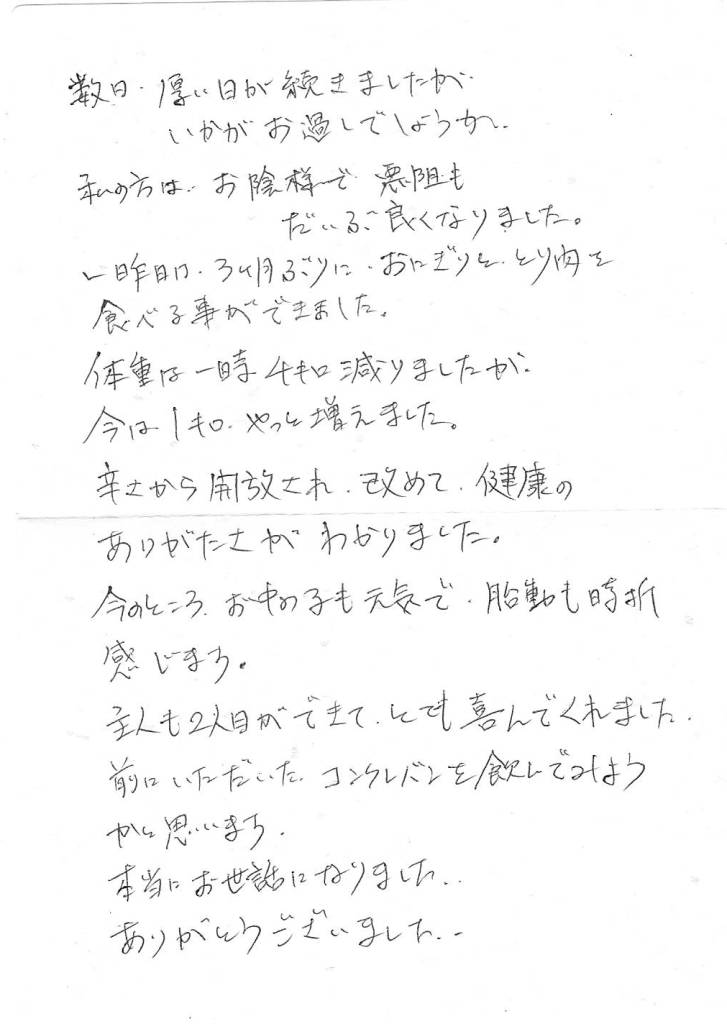 数日、厚い日が続きましたが、
いかがお過しでしょうか。
私の方は、お陰様で悪阻も
だいぶ良くなりました。
一昨日、3ヶ月ぶりに、おにぎりと、とり肉を
食べる事ができました。
体重は一時4キロ減りましたが、
今は1キロ、やっと増えました。
辛さから開放され、改めて、健康の
ありがたさがわかりました。
今のところ、お中の子も元気で、胎動も時折
感じます。
主人も2人目ができて、とても喜んでくれました。
前にいただいた、コンクレバンを飲んでみよう
かと思います。
本当にお世話になりました。
ありがとうございました。